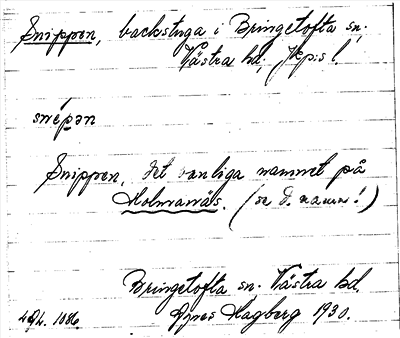 Snippen, backstuga i Bringetofta sn;
Västra hd; Jkp:s l.
snípən
Snippen, det vanliga namnet på
Holmanäs. (se d. namn!)
Bringetofta sn. Västra hd.
Agnes Hagberg 1930.